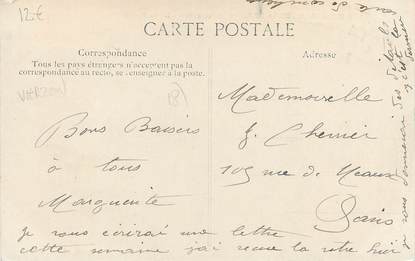 12€
CARTE POSTALE
Correspondance
Tous les pays étrangers n'acceptent pas la
correspondance au recto, se renseigner à la poste.
Adresse
VIERZON
(8)
Bons Baisers
à tous
Marguerite
je vous écrirai une lettre
cette semaine j'ai recue la votre hier
Mademoiselle
J. Cherrier
105 rue de Meaux
Paris
je vous donnerai des détails